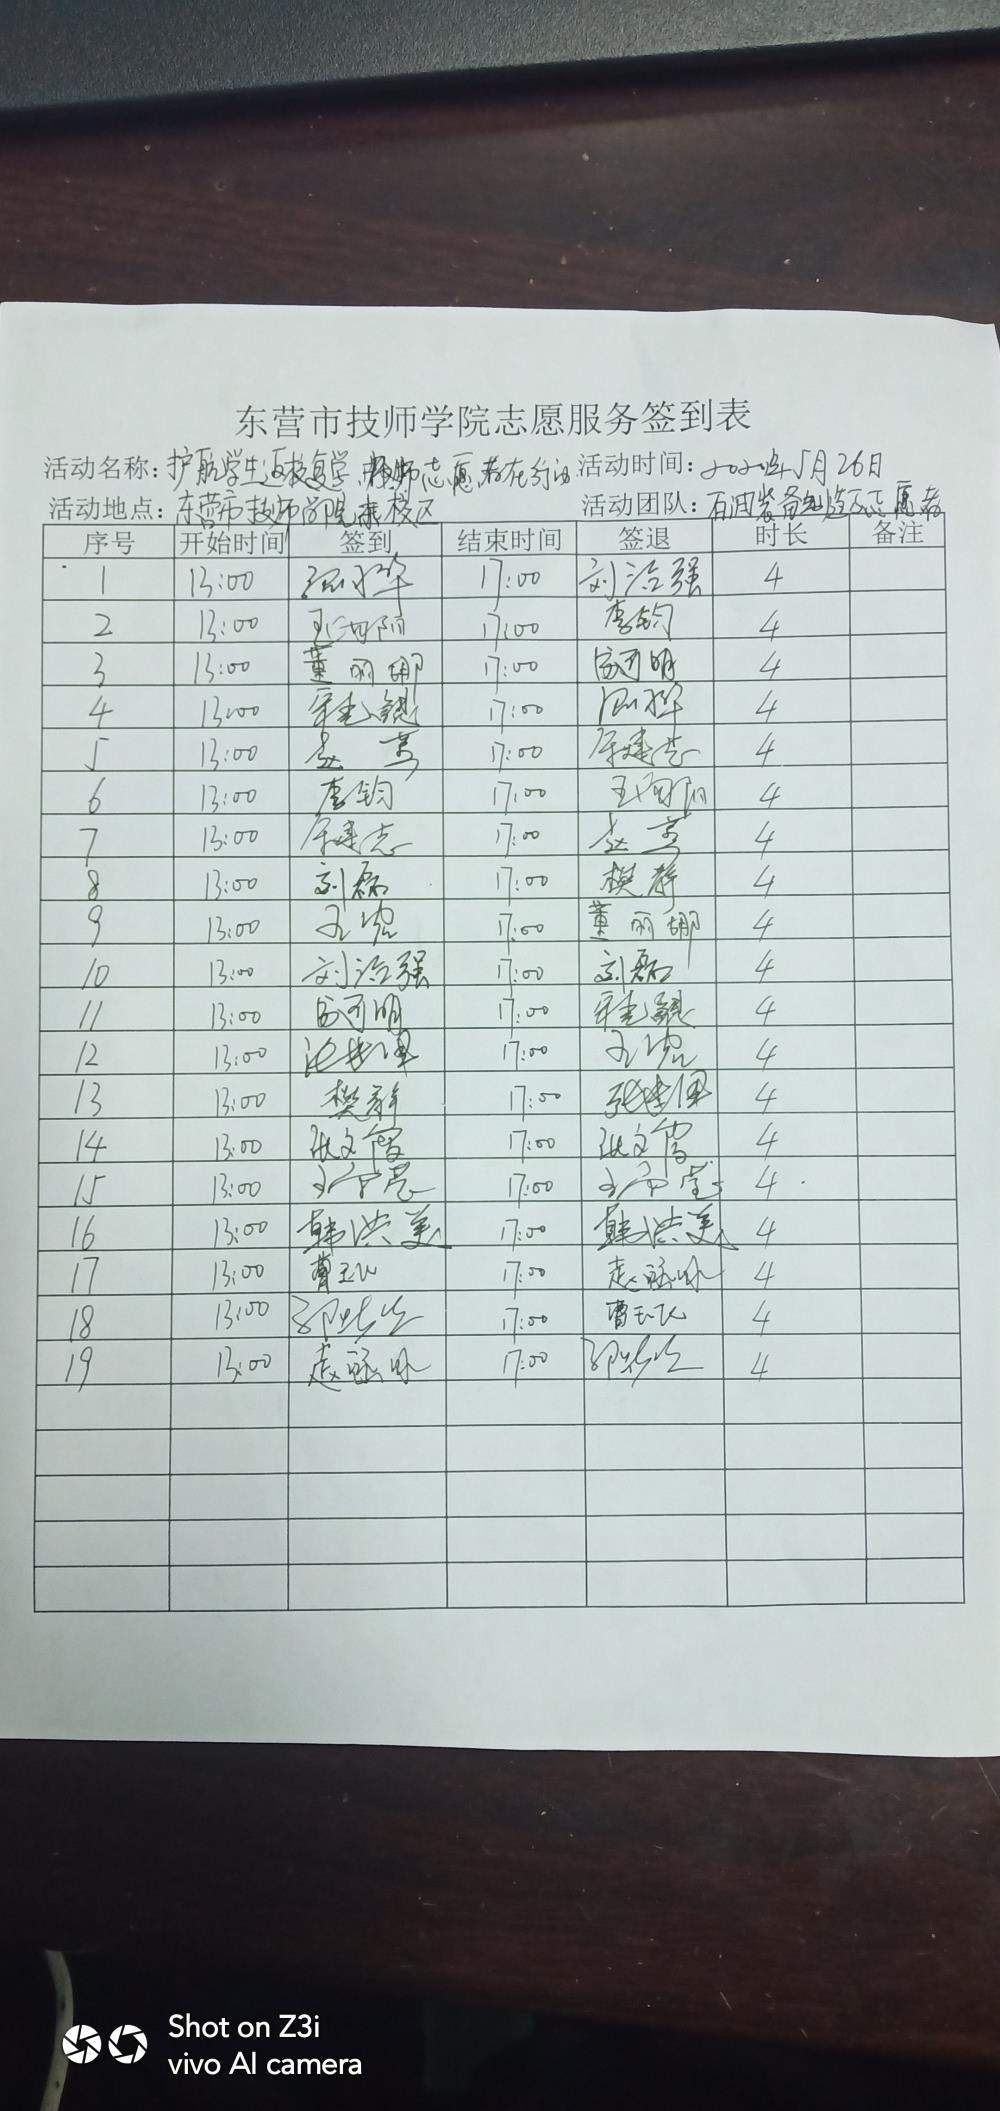 东营市技师学院志愿服务签到表
活动名称: 护航学生返校复学 教师志愿者在行动 活动时间: 2020年5月26日
活动地点: 东营市技师学院东校区 活动团队: 石油装备制造系志愿者
序号 开始时间 签到 结束时间 签退 时长 备注
1 13:00 17:00 刘治强 4
2 13:00 王向阳 17:00 李钧 4
3 13:00 董丽娜 17:00 4
4 13:00 17:00 4
5 13:00 赵燕 17:00 4
6 13:00 李钧 17:00 王向阳 4
7 13:00 17:00 赵燕 4
8 13:00 刘磊 17:00 樊静 4
9 13:00 17:00 董丽娜 4
10 13:00 刘治强 17:00 刘磊 4
11 13:00 17:00 4
12 13:00 17:00 4
13 13:00 樊静 17:00 4
14 13:00 张文霞 17:00 张文霞 4
15 13:00 17:00 4
16 13:00 韩洪美 17:00 韩洪美 4
17 13:00 曹玉飞 17:00 4
18 13:00 17:00 曹玉飞 4
19 13:00 17:00 4
Shot on Z3i
vivo AI camera